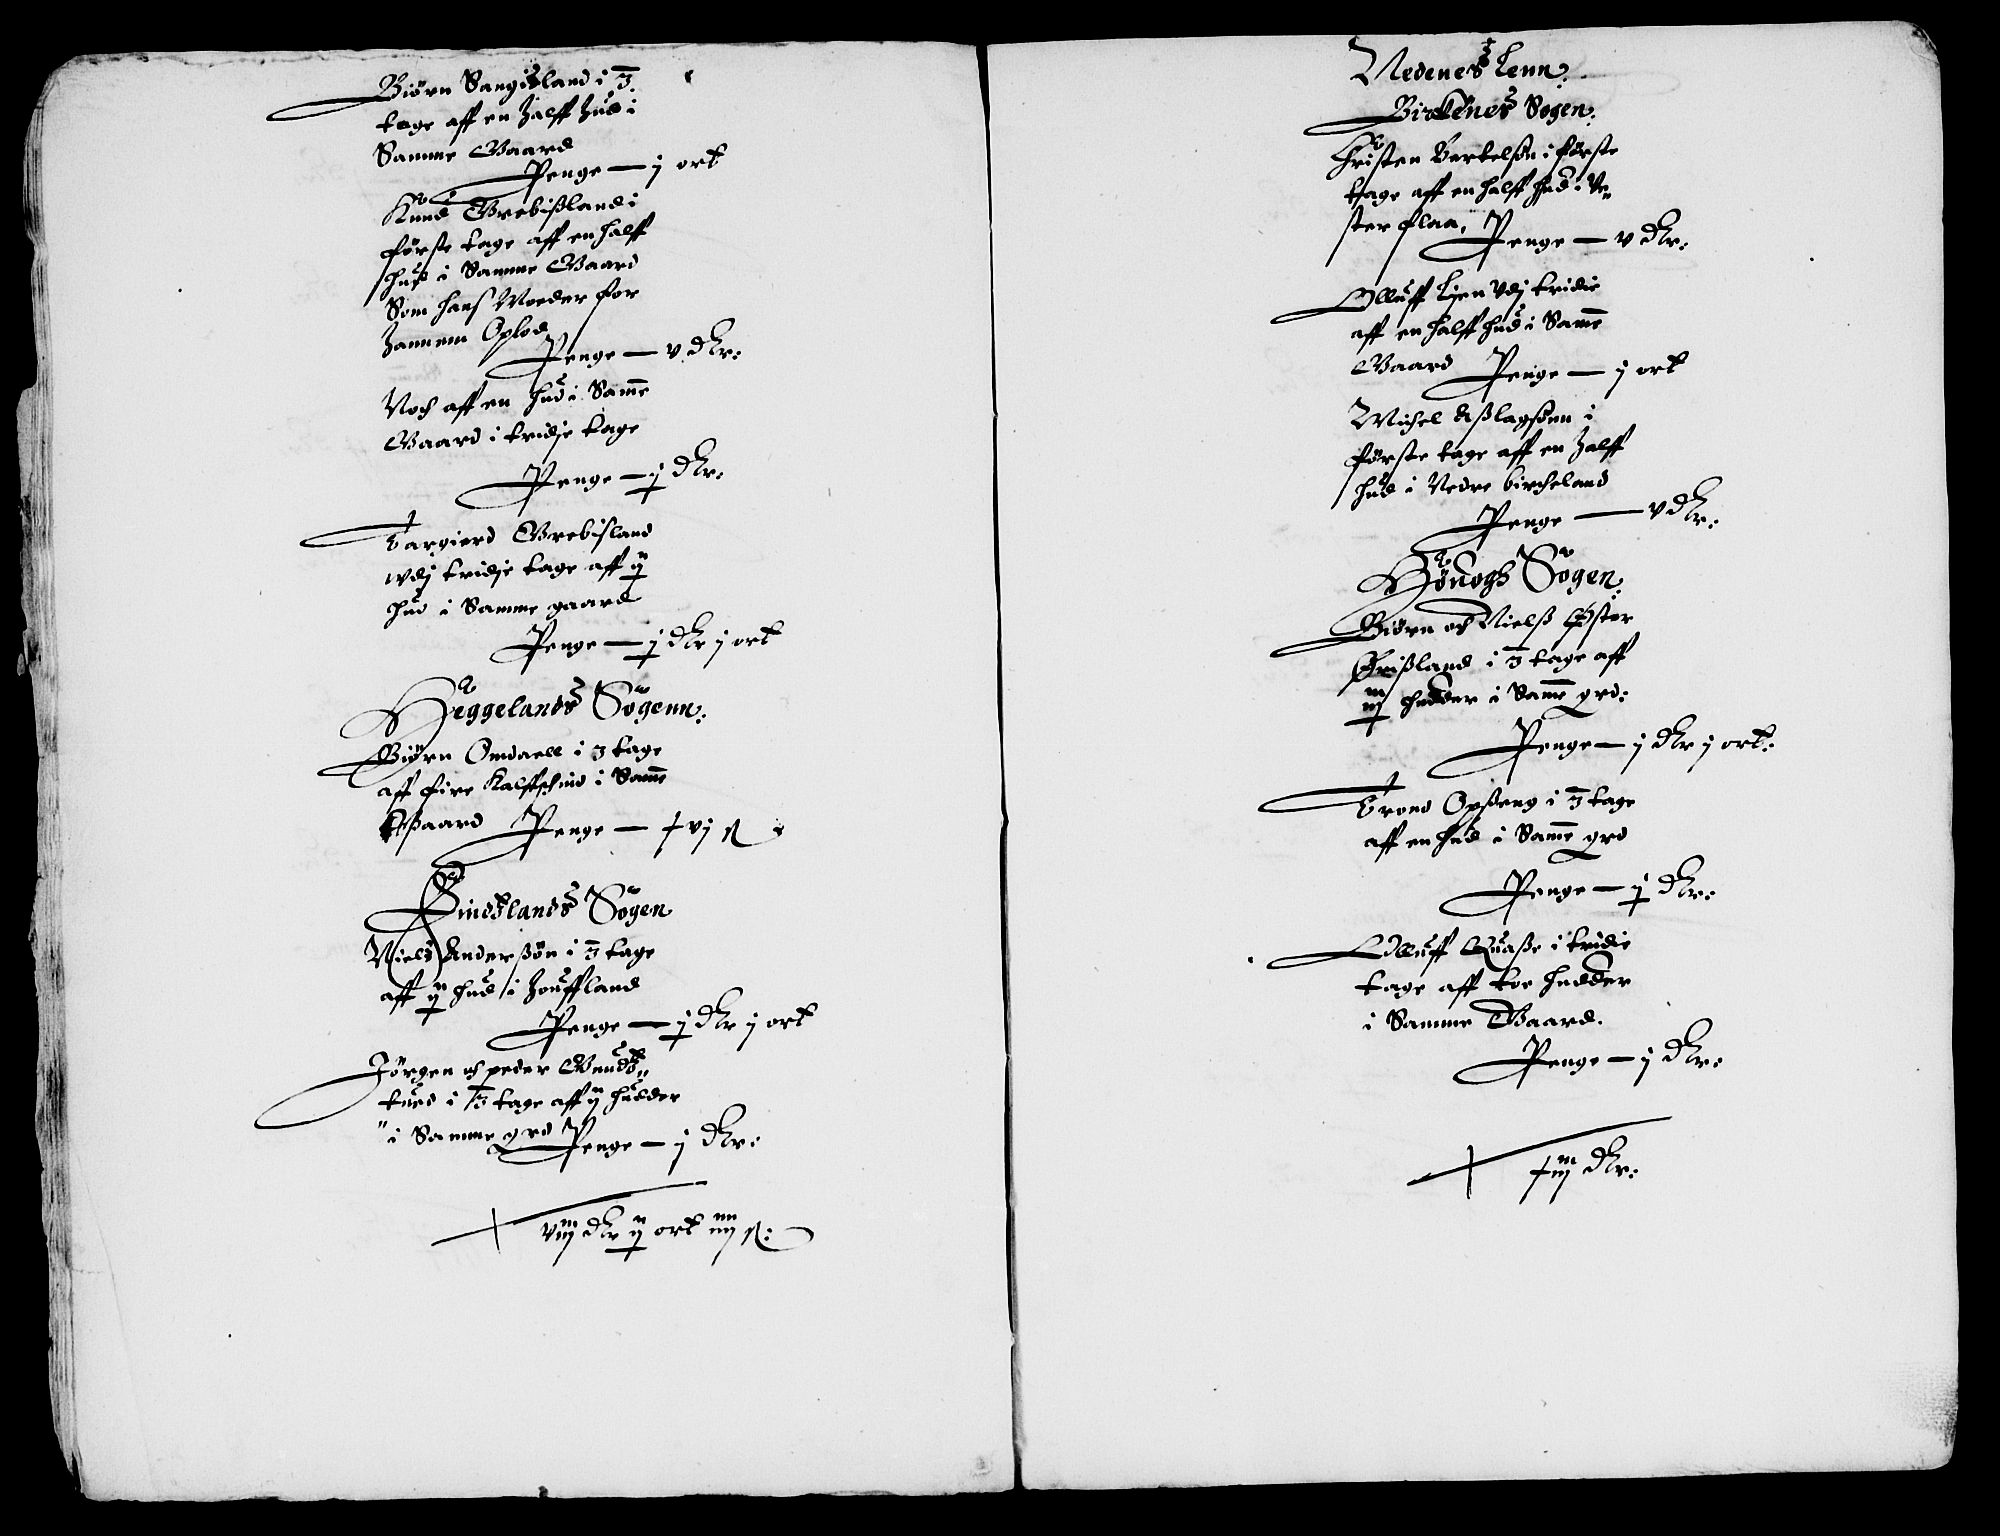 Biørn Sangisland i 3
tage aff en halff hud i
Samme Gaard
Penge — j ort
Knud Grebisland i
første tage aff en halff
hud i Samme Gaard
Som hans Moeder for
hannem Oplod
Penge — v dlr:
Noch aff en hud i Same
Gaard i tridje tage
Penge — ij dlr:
Targierd Grebisland
wdj tridje tage aff ij
hud i Samme gaard
Penge — ij dlr j ort
Heggelands Sogenn.
Biørn Omdaell i 3 tage
aff fire Kalffschind i Same
Gaard Penge — xvj s
Findslands Sogen
Niels Anderßøn i 3 tage
aff ij hud i houffland
Penge — ij dlr j ort
Jørgen och peder
tued i 3 tage aff ij hudder
i Samme grd Penge — j dlr:
viij dlr ij ort iiij s:
Nedenes Lenn.
Birkenes Sogen.
Christen Bertelßn i første
tage aff en halff hud i Ve„
ster flaa, Penge — v dlr:
Olluff Lien vdj tridie
aff en halff hud i Same
Gaard Penge — j ort
Michel Aßlagsønn i
første tage aff en halff
hud i Nedre bircheland
Penge — v dlr:
Høuogs Sogen.
Biørn och Nielß Øster
Grißland i 3 tage aff
iij hudder i Same grd:
Penge — j dlr j ort:
Trond Opßeng i 3 tage
aff en hud i Same grd
Penge — ij dlr:
Olluff Quaße i tridie
tage aff toe hudder
i Samme Gaard.
Penge — j dlr:
xiij dlr: